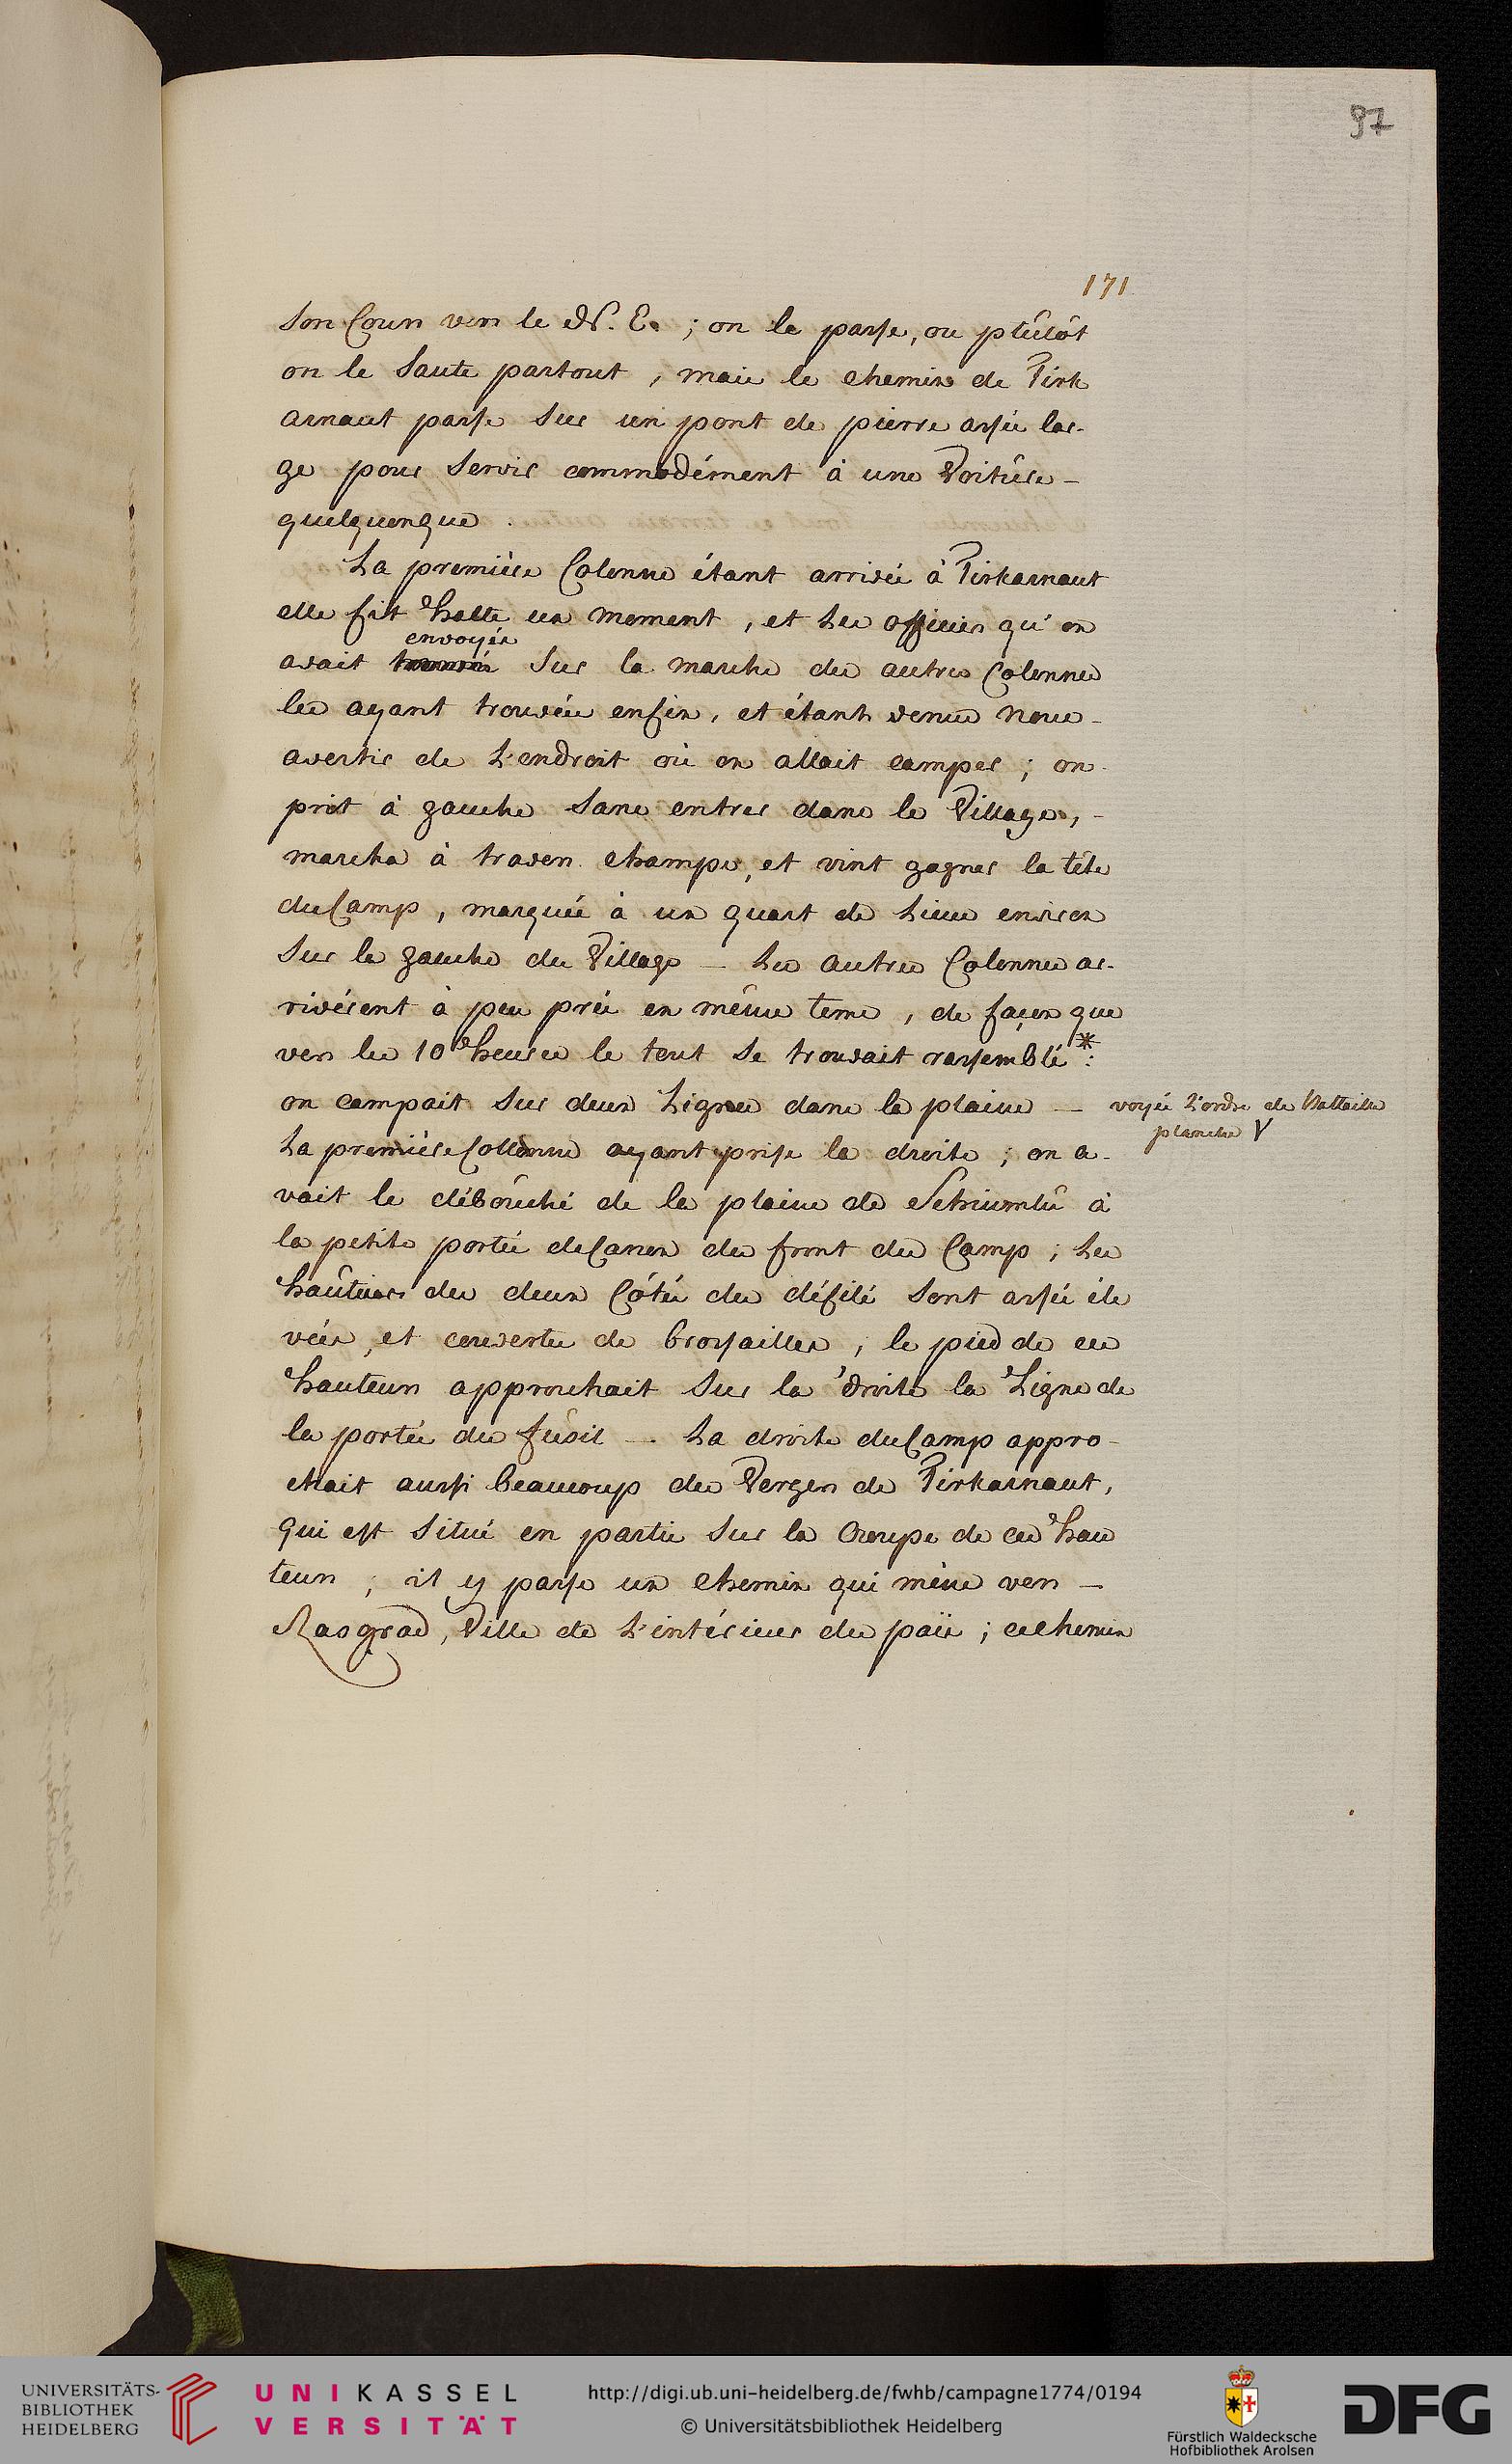 97
171
son Cours vers le N. E. ; on le passe, ou plûtôt
on le saute partout, mais le chemin de Pirk
arnaut passe sur un pont de pierre assés lar-
ge pour servir commodément à une Voitûre -
quelquonque.
La première Colonne étant arrivée à Pirkarnaut
elle fit halte un moment, et les officiers qu'on
envoyés
avait sur la marche des autres Colonnes
les ayant trouvées enfin, et étants venus nous -
avertir de l'endroit où on allait camper ; on
prit à gauche sans entrer dans le Village, -
marcha à travers champs, et vint gagner la tête
du Camp, marquée à un quart de Lieue environ
sur la gauche du Village — Les autres Colonnes ar-
rivérent à peu près en même tems, de façon que
vers les 10 heures le tout se trouvait rassemblé * :
on campait sur deux Lignes dans la plaine —
voyés l'ordre de Battaille
planche V
La première Collonne ayant prise la droite ; on a-
vait le débouché de la plaine de Schiumlû à
la petite portée de Canon du front du Camp ; les
hauteurs des deux Côtés du défilé sont assés éle
vées, et couvertes de brossailles ; le pied de ces
hauteurs approchait sur la droite la Ligne de
la portée du fusil — . La droite du Camp appro-
chait aussi beaucoup des Vergers de Pirkarnaut,
qui est situé en partie sur la Croupe de ces hau
teurs ; il y passe un chemin qui mène vers —
Rasgrad, Ville de l'intérieur du païs ; ce chemin
UNIVERSITÄTS-
BIBLIOTHEK
HEIDELBERG
UNIKASSEL
VERSITÄT
http://digi.ub.uni-heidelberg.de/fwhb/campagne1774/0194
© Universitätsbibliothek Heidelberg
Fürstlich Waldecksche
Hofbibliothek Arolsen
DFG